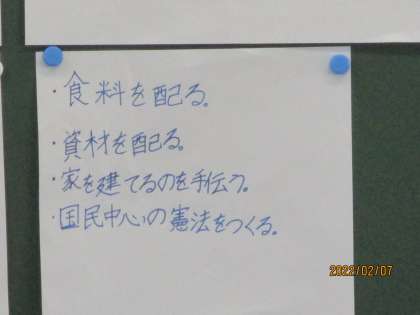 ・食料を配る。
・資材を配る。
・家を建てるのを手伝う。
・国民中心の憲法をつくる。
2022/02/07